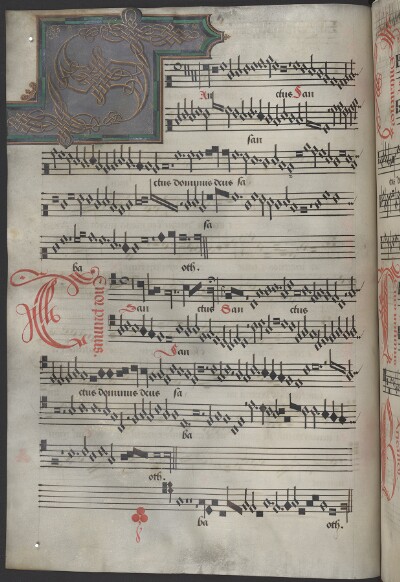 An ctus San
san
ctus dominus deus sa
sa
ba oth.
San ctus San ctus
San
ctus dominus deus sa
ba
oth.
ba oth.